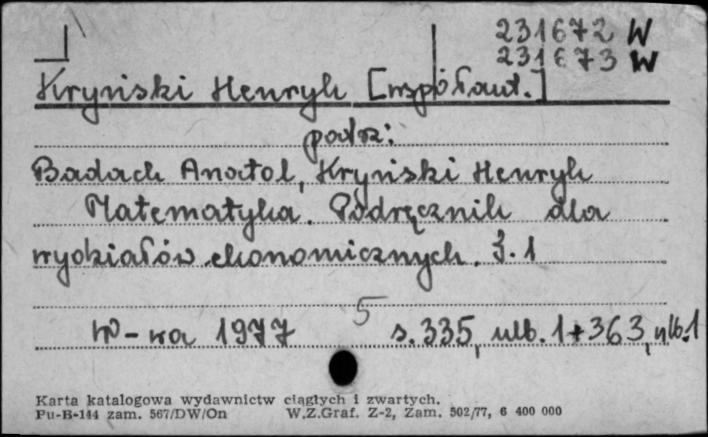 231672 W
231673 W
Kryński Henryk [współaut.]
patrz:
Badach Anatol, Kryński Henryk
Matematyka. Podręcznik dla
wydziałów ekonomicznych. T. 1
W-wa 1977 5 s. 335, nlb. 1 + 363, nlb. 1
Karta katalogowa wydawnictw ciągłych i zwartych.
Pu-B-144 zam. 567/DW/On W.Z.Graf. Z-2, Zam. 502/77, 6 400 000